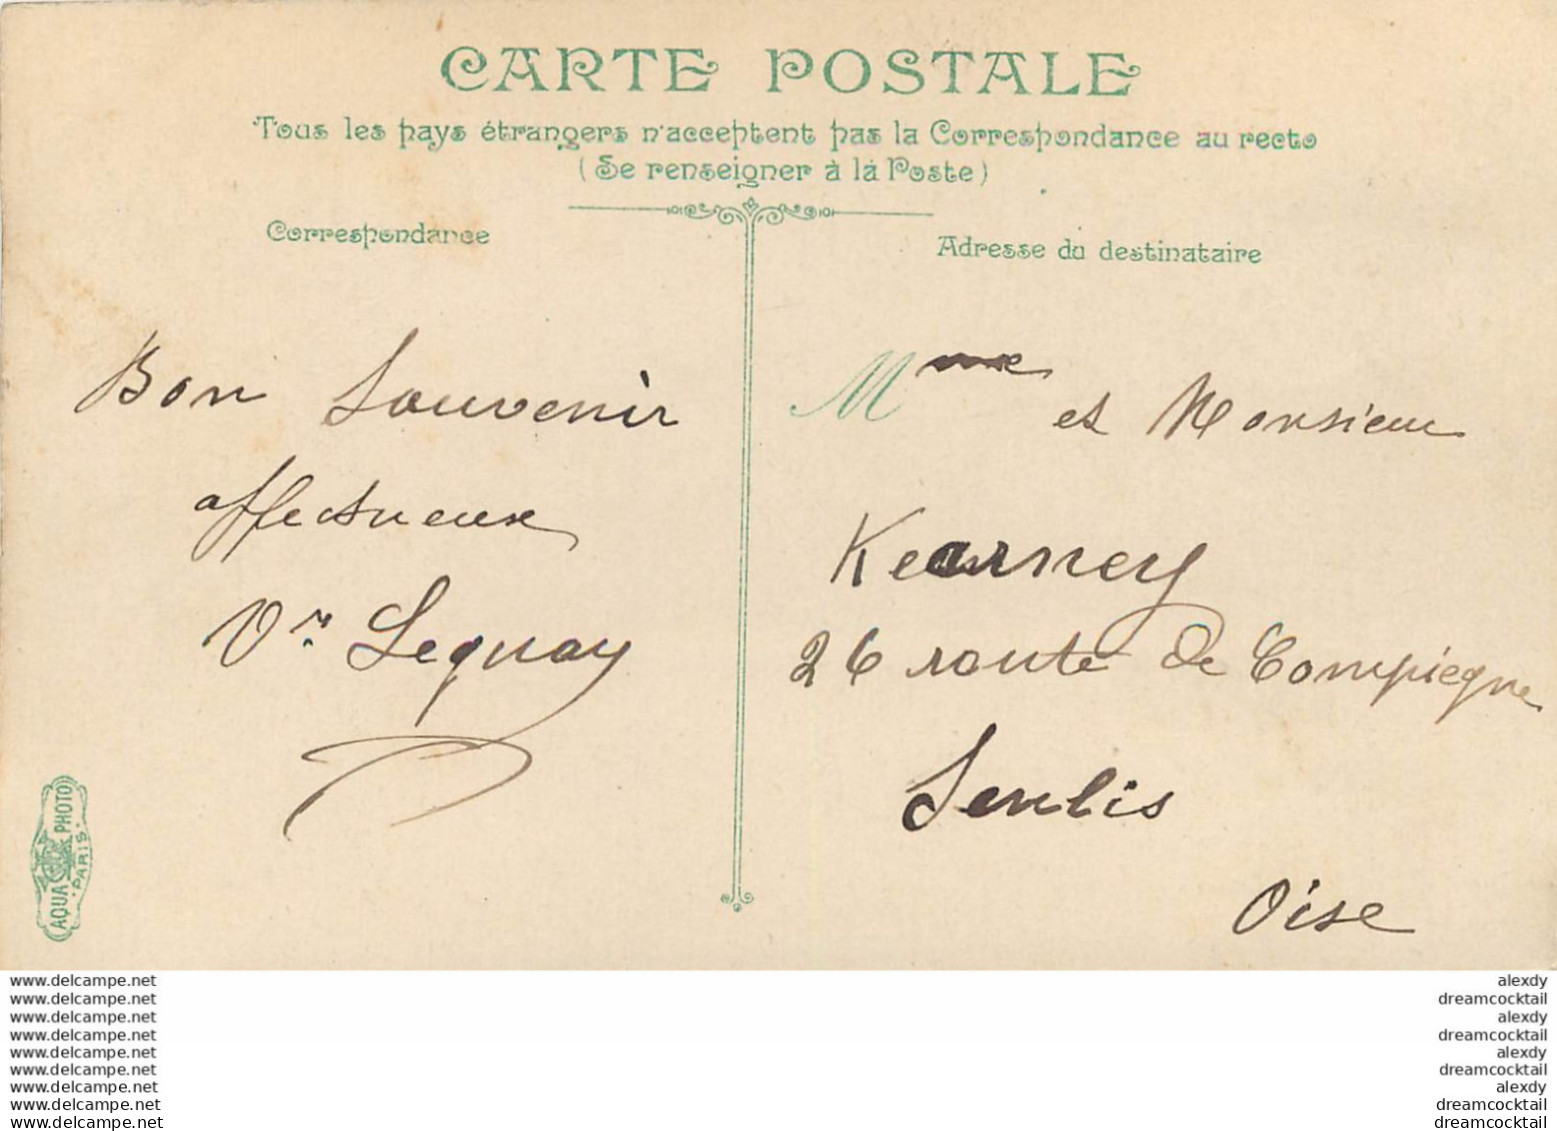 CARTE POSTALE
Tous les pays étrangers n'acceptent pas la Correspondance au recto
(Se renseigner à la Poste)
Correspondance
Bon Souvenir
affectueux
Vve Lequay
AQUA PHOTO
PARIS
Adresse du destinataire
Mme et Monsieur
Kearney
26 route de Compiegne
Senlis
Oise
www.delcampe.net
www.delcampe.net
www.delcampe.net
www.delcampe.net
www.delcampe.net
www.delcampe.net
www.delcampe.net
www.delcampe.net
www.delcampe.net
alexdy
dreamcocktail
alexdy
dreamcocktail
alexdy
dreamcocktail
alexdy
dreamcocktail
dreamcocktail